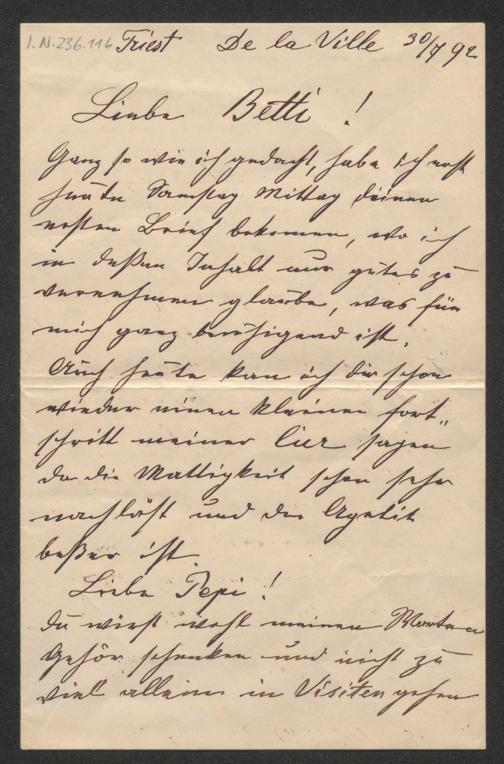 I.N. 236.116 Triest De la Ville 30/7 92
Liebe Betti!
Ganz so wie ich gedacht, habe ich erst
heute Samstag Mittag deinen
ersten Brief bekommen, wo ich
in deßen Inhalt nur gutes zu
vernehmen glaube, was für
mich ganz beruhigend ist.
Auch heute kan ich dir schon
wieder einen kleinen fort„
schritt meiner Cur sagen
da die Mattigkeit schon sehr
nachläßt und der Apetit
beßer ist.
Liebe Pepi!
du wirst wohl meinen Worten
Gehör schenken und nicht zu
viel allein in Visiten gehen